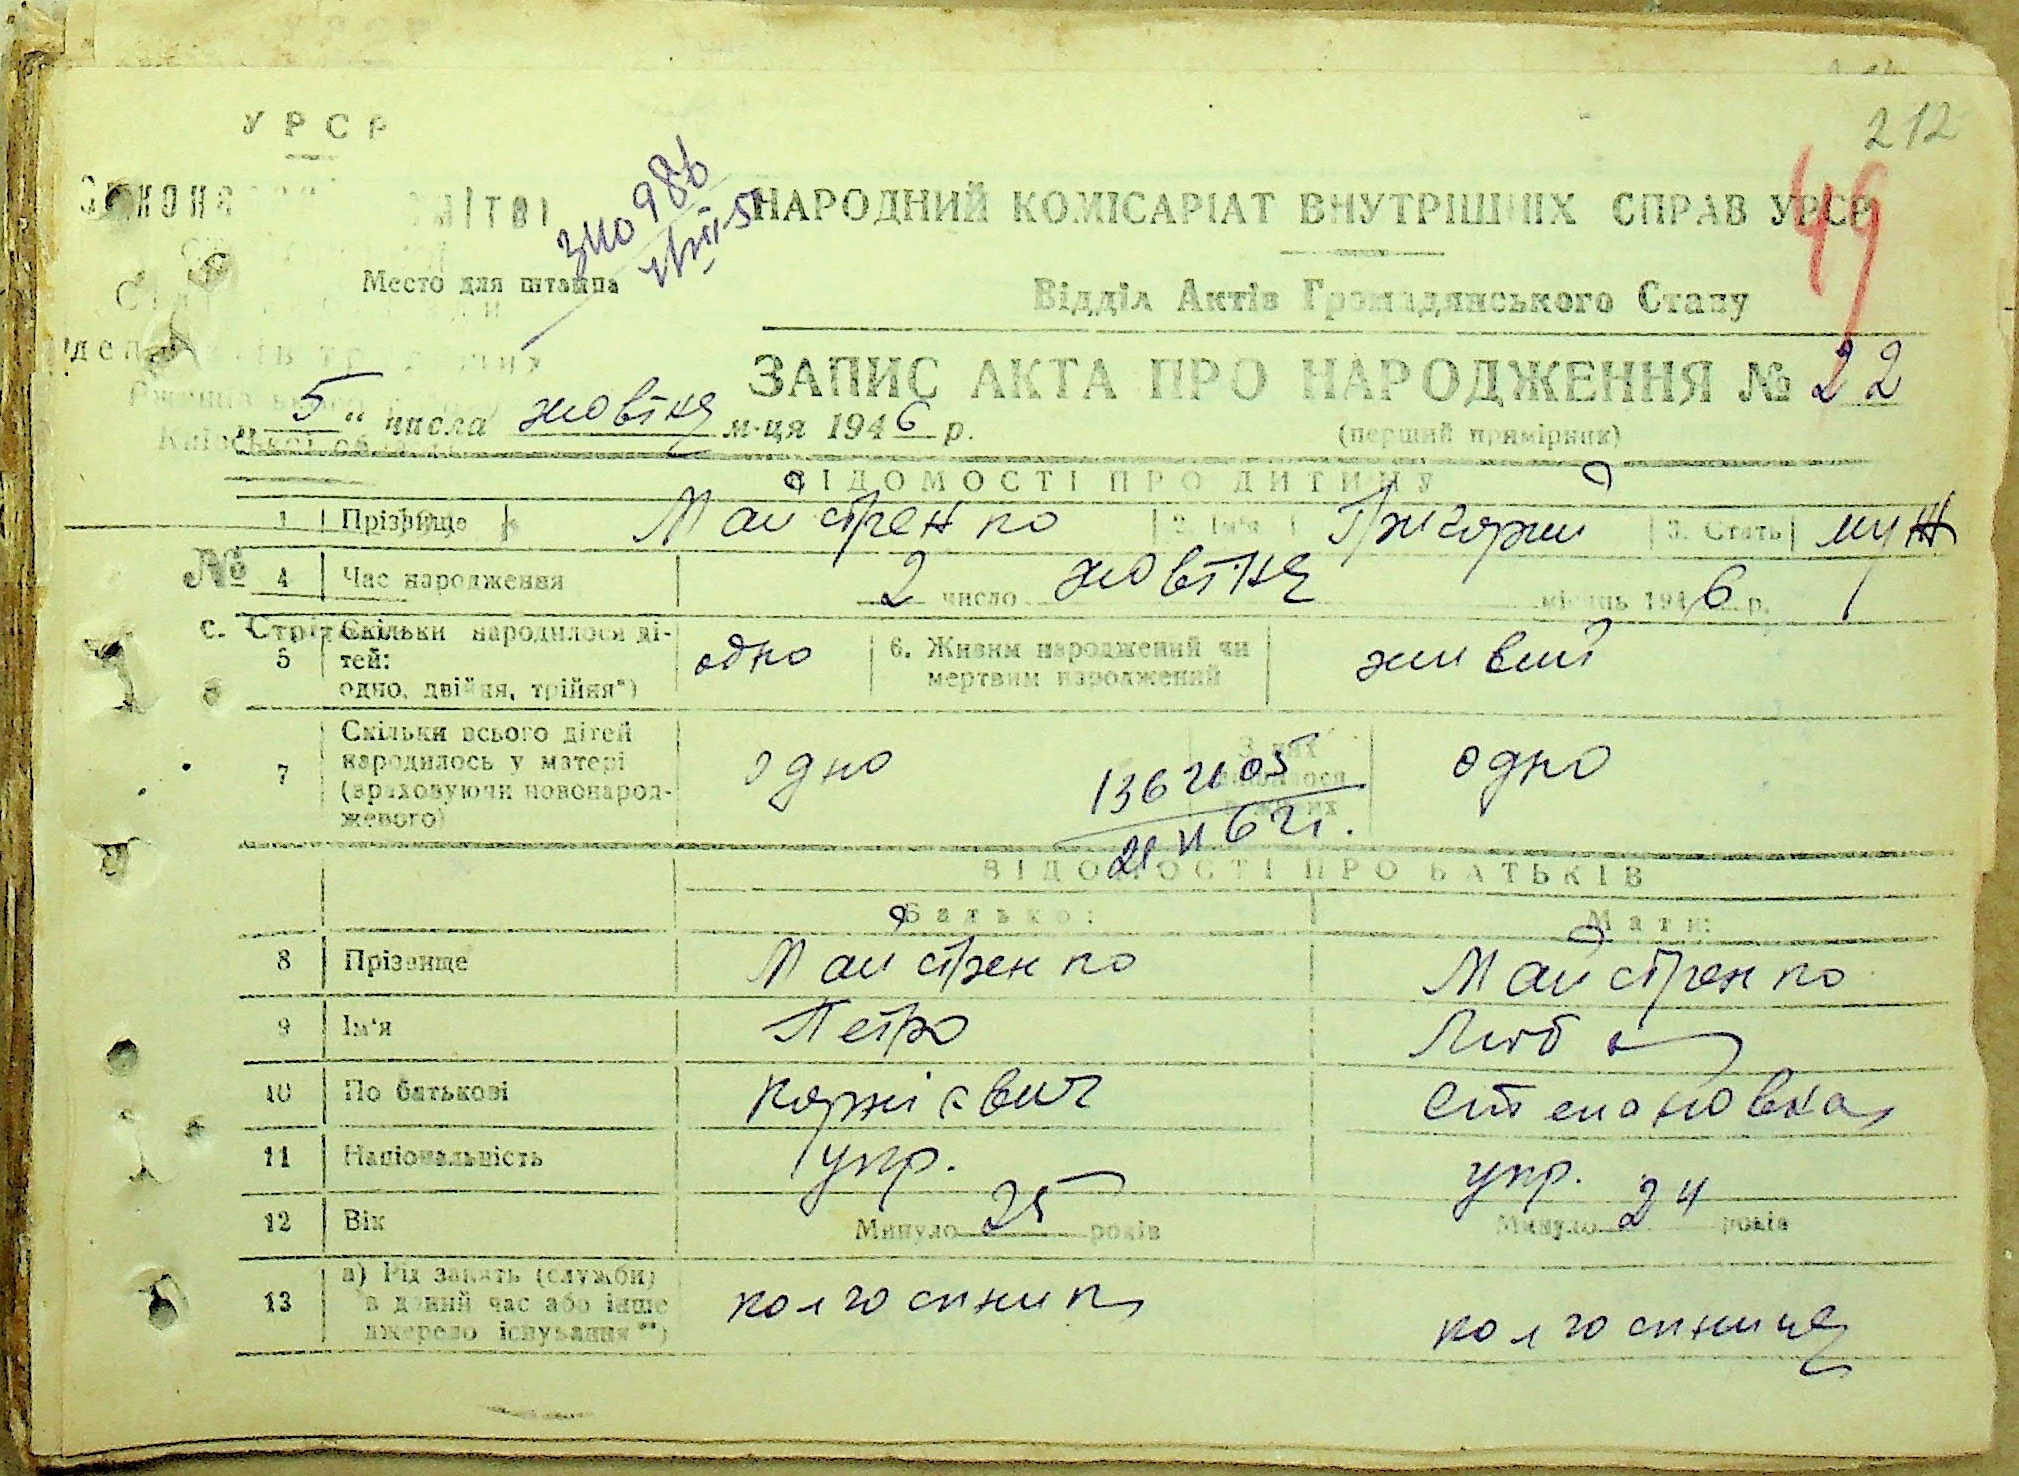 212
УРСР
49
НАРОДНИЙ КОМІСАРІАТ ВНУТРІШНІХ СПРАВ УРСР
Место для штампа
Відділ Актів Громадянського Стану
ЗАПИС АКТА ПРО НАРОДЖЕННЯ № 22
„5“ числа жовтня м-ця 1946 р.
(перший примірник)
Київської
ВІДОМОСТІ ПРО ДИТИНУ
1 Прізвище Майстренко 2. Ім'я Григорий 3. Стать муж
№
4 Час народження 2 число жовтня місяць 1946 р.
с.
5 Скільки народилося дітей: одно, двійня, трійня*) одно 6. Живим народжений чи мертвим народжений живий
7 Скільки всього дітей народилось у матері (враховуючи новонародженого) одно З них одно
ВІДОМОСТІ ПРО БАТЬКІВ
Батько: Мати:
8 Прізвище Майстренко Майстренко
9 Ім'я Петро Люба
10 По батькові Корнієвич Степановна
11 Національність укр. укр.
12 Вік Минуло 25 років Минуло 24 років
13 а) Рід занять (служби) в даний час або інше джерело існування**) колгоспник колгоспниця